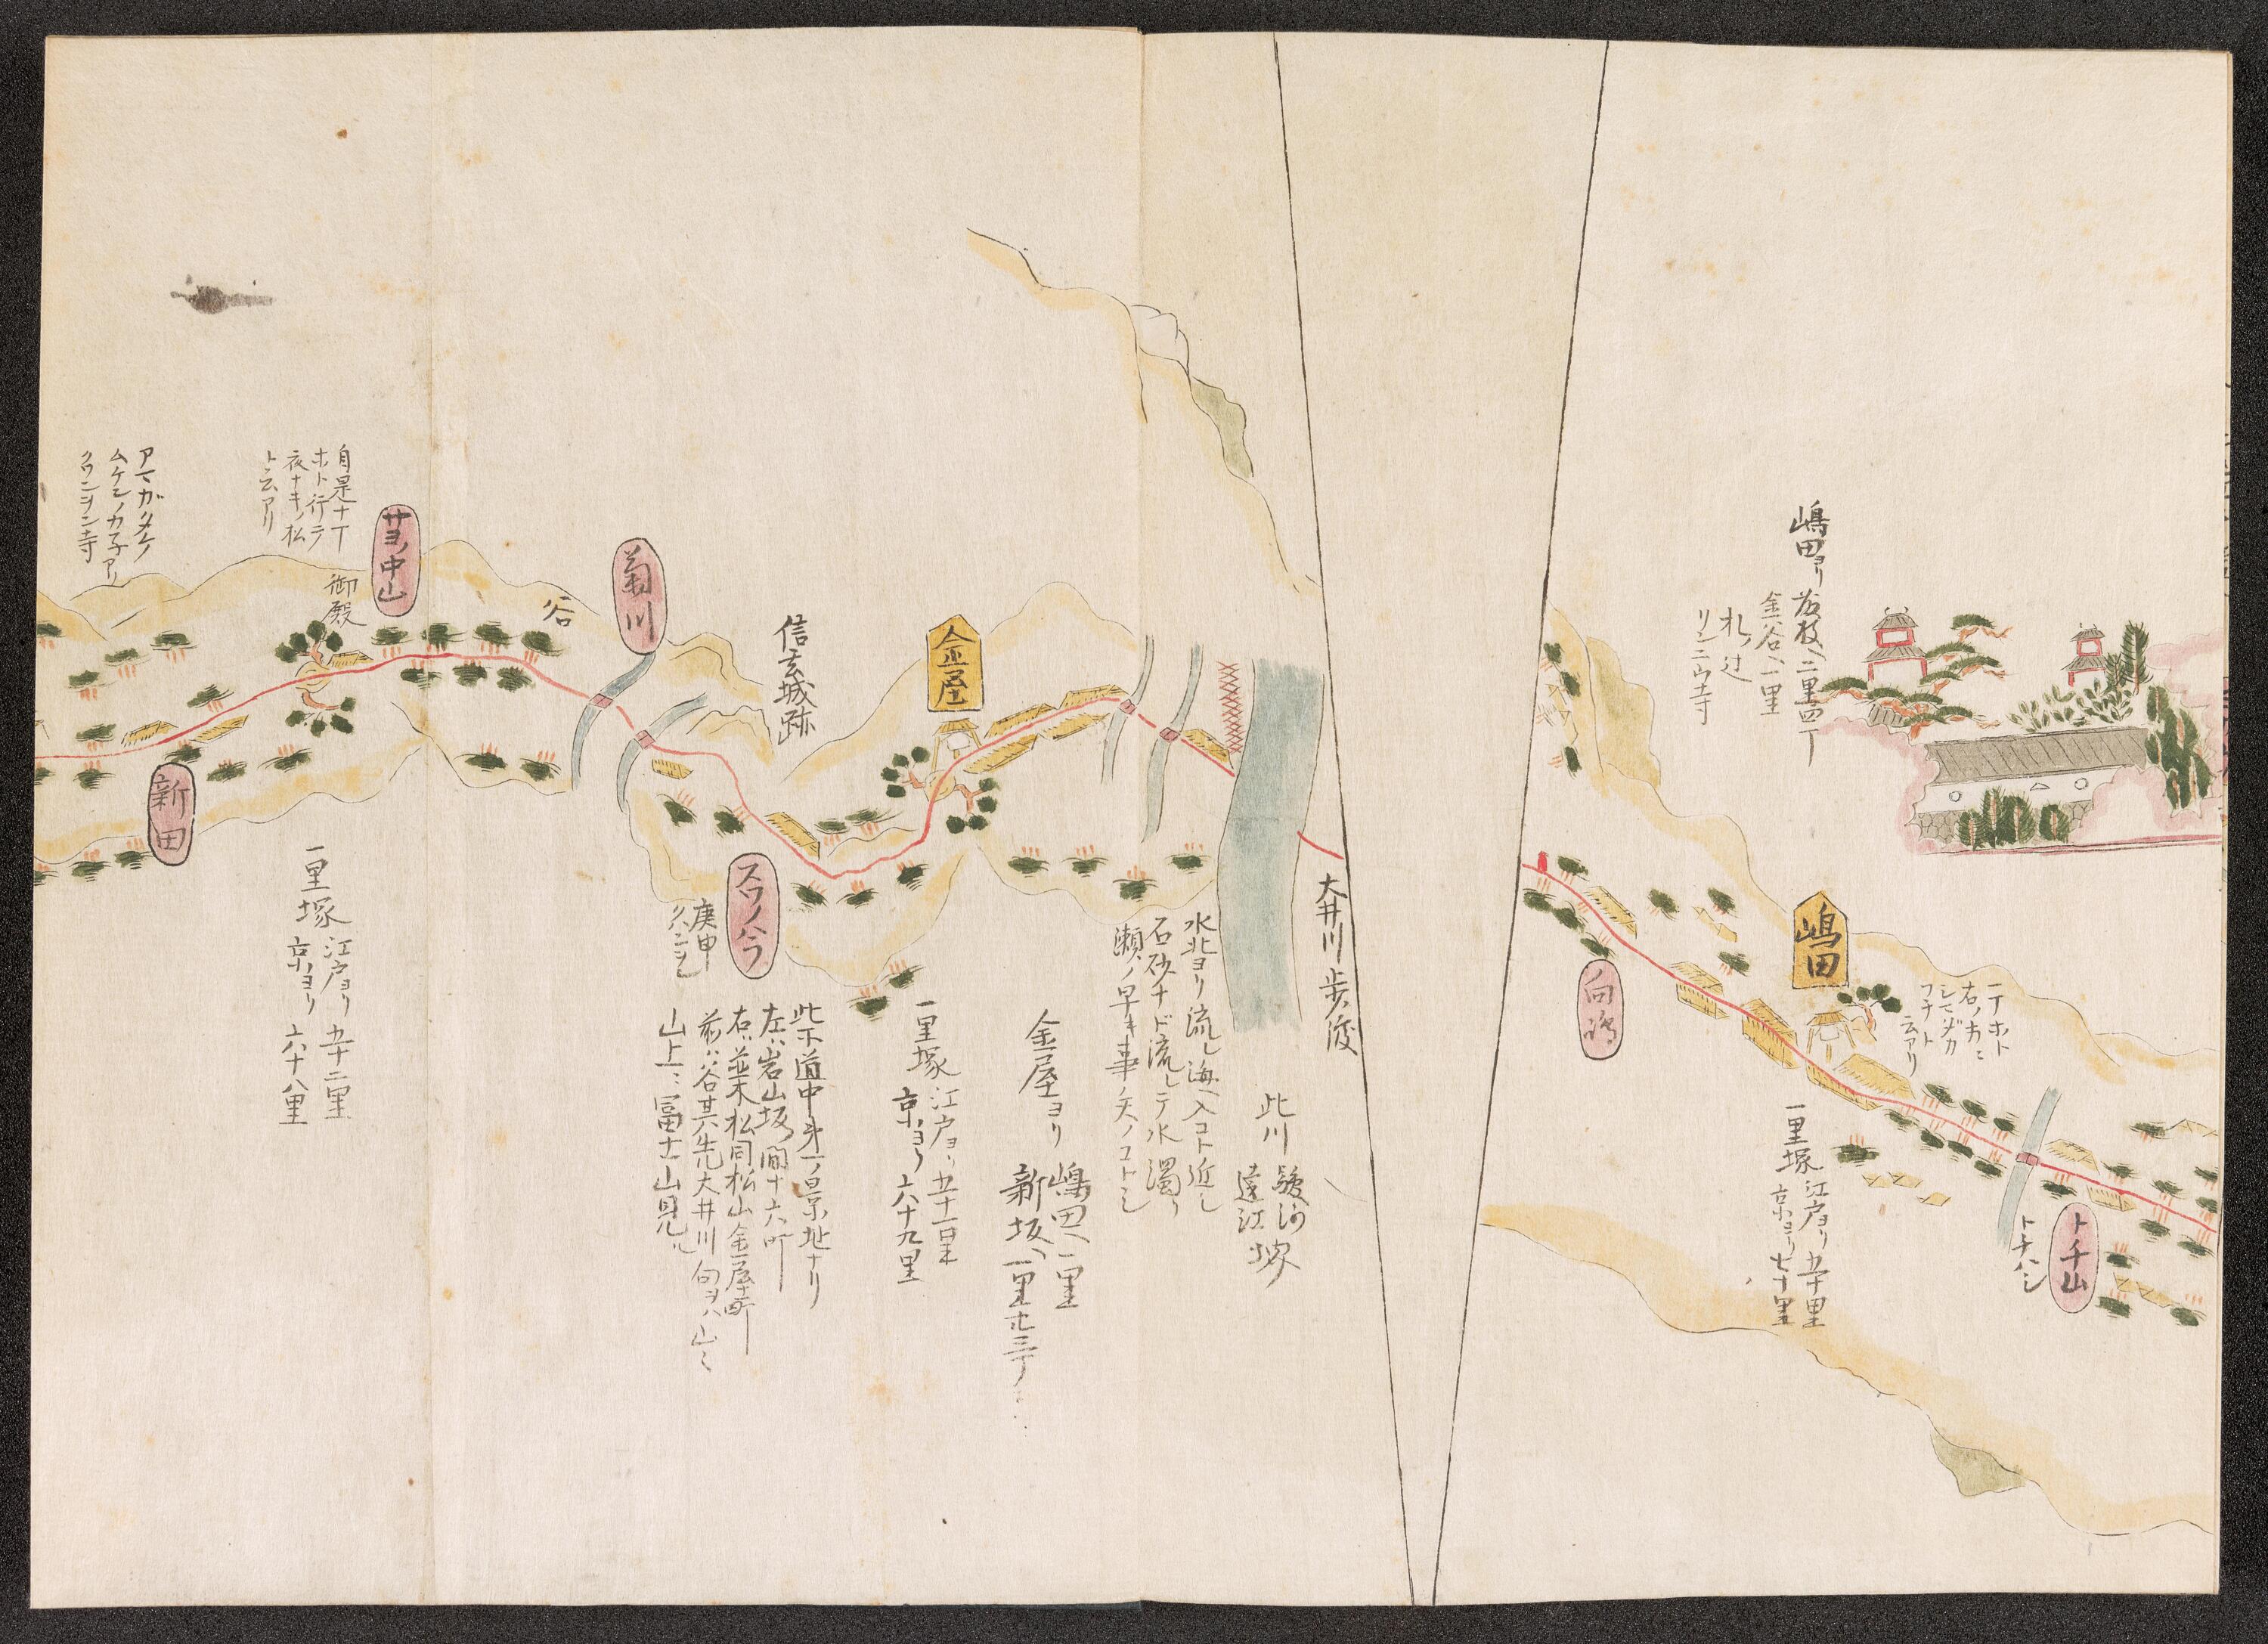 嶋田ヨリ
藤枝ヘ二里四丁
金谷ヘ一里
札ノ辻
リンニ山寺
嶋田
一丁ホト
右ノ方ニ
シマダガ
フチト
云アリ
トチ山
トチハシ
一里塚
江戸ヨリ五十里
京ヨリ七十里
向嶋
大井川歩渡
此川
駿河
遠江
堺
水北ヨリ流レ海ヘ入コト近し
石砂ナド流レテ水濁リ
瀬ノ早キ事ノ矢ノコトシ
金屋
金屋ヨリ
嶋田ヘ一里
新坂ヘ一里廿三丁
一里塚
江戸ヨリ五十一里
京ヨリ六十九里
信玄城跡
此下道中第一ノ景地ナリ
左ハ岩山坂ノ間十六町
右ハ並木松同松山金屋町
前ハ谷其六先大井川向ヲハ山ミ
山上ニ冨士山見ル
スワノハラ
庚申
菊川
谷
サヨノ中山
御殿
自是十丁
ホト行テ
夜ナキノ松
ト云アリ
一里塚
江戸ヨリ五十二里
京ヨリ六十八里
新田
ムケンノカ子アリ
クワンヲン寺